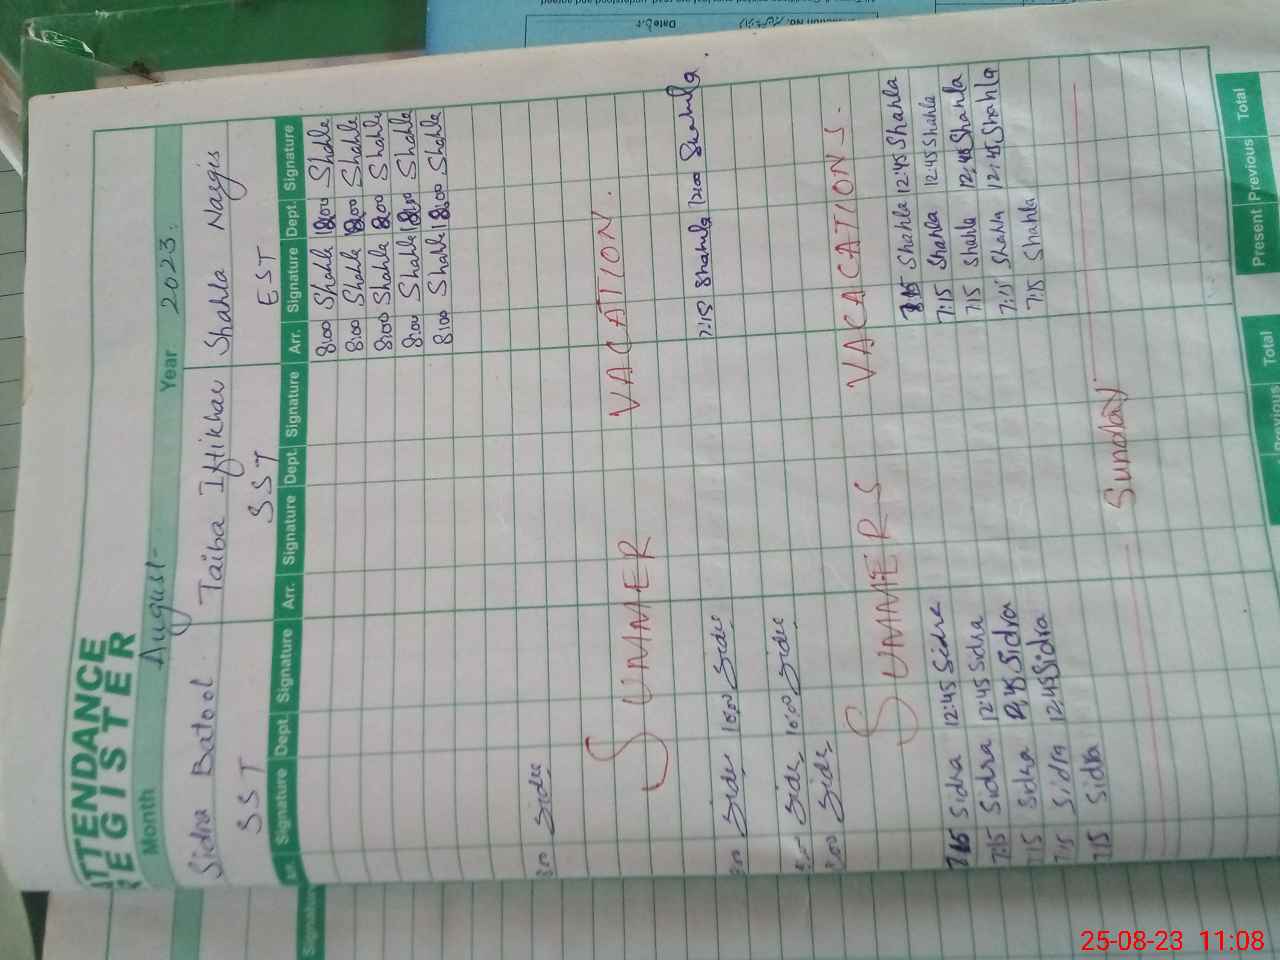 ATTENDANCE
REGISTER
Month August Year 2023.
Sidra Batool Taiba Iftikhar Shahla Nargis
SST SST EST
Arr. Signature Dept. Signature Arr. Signature Dept. Signature Arr. Signature Dept. Signature
8:00 Shahla Shahla
8:00 Shahla Shahla
8:00 Shahla Shahla
8:00 Shahla Shahla
8:00 Shahla Shahla
8:00 Sidra
SUMMER VACATION.
7:15 Shahla 12:00 Shahla
8:00 Sidra 10:00 Sidra
8:00 Sidra 10:00 Sidra
8:00 Sidra
SUMMERS VACATIONS.
7:15 Sidra 12:45 Sidra 7:15 Shahla 12:45 Shahla
7:15 Sidra 12:45 Sidra 7:15 Shahla 12:45 Shahla
7:15 Sidra 12:45 Sidra 7:15 Shahla 12:45 Shahla
7:15 Sidra 12:45 Sidra 7:15 Shahla 12:45 Shahla
7:15 Sidra 7:15 Shahla
Sunday.
Previous Total Present Previous Total
Signature
Date
25-08-23 11:08